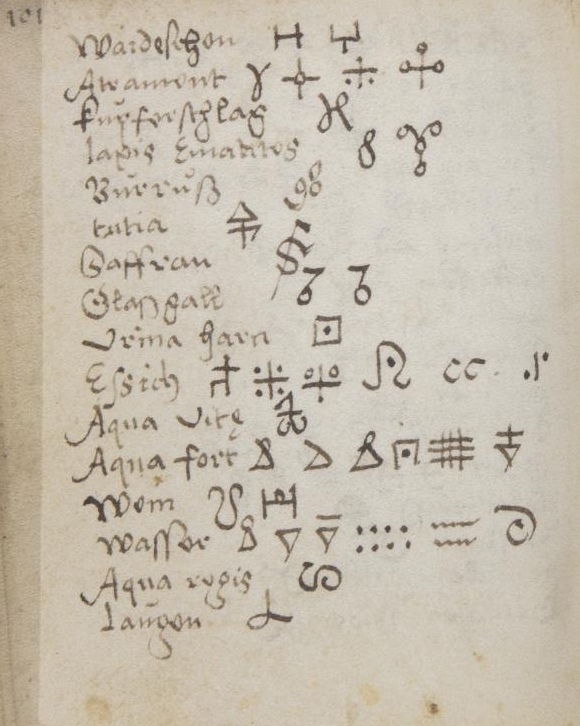 101
Waideschen
Atrament
Kupferschlag
lapis Ematites
Burruß
tutia
Saffran
Glaßgall
Vrina harn
Essich
Aqua vitę
Aqua fort
Wein
wasser
Aqua regis
laugen